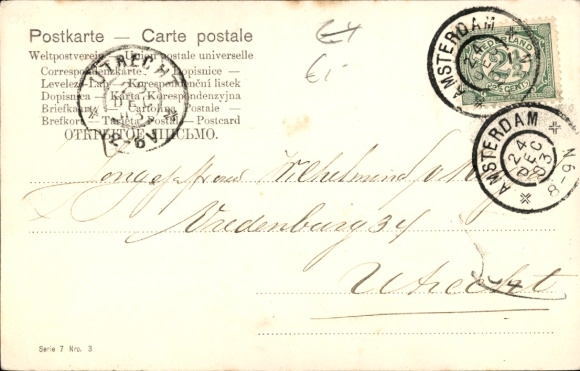 Postkarte — Carte postale
Weltpostverein — Union postale universelle
Correspondenzkarte — Dopisnice —
Levelező-Lap — Korespondenční listek
Dopisnica — Karta Korespondencyjna
Briefkaart — Cartolina Postale —
Brefkort — Tarjeta Postal — Postcard
ОТКРЫТОЕ ПИСЬМО.
UTRECHT
AMSTERDAM
NEDERLAND
2½
CENT
AMSTERDAM
24
DEC
03
8-9N
Vredenburg 34
Utrecht
Serie 7 Nro. 3